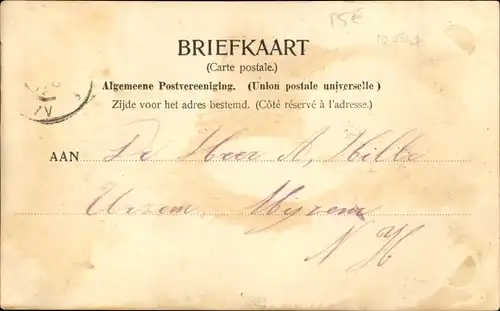 15€
BRIEFKAART
(Carte postale.)
Algemeene Postvereeniging. (Union postale universelle)
Zijde voor het adres bestemd. (Côté réservé à l'adresse.)
AAN De Heer A,
N H